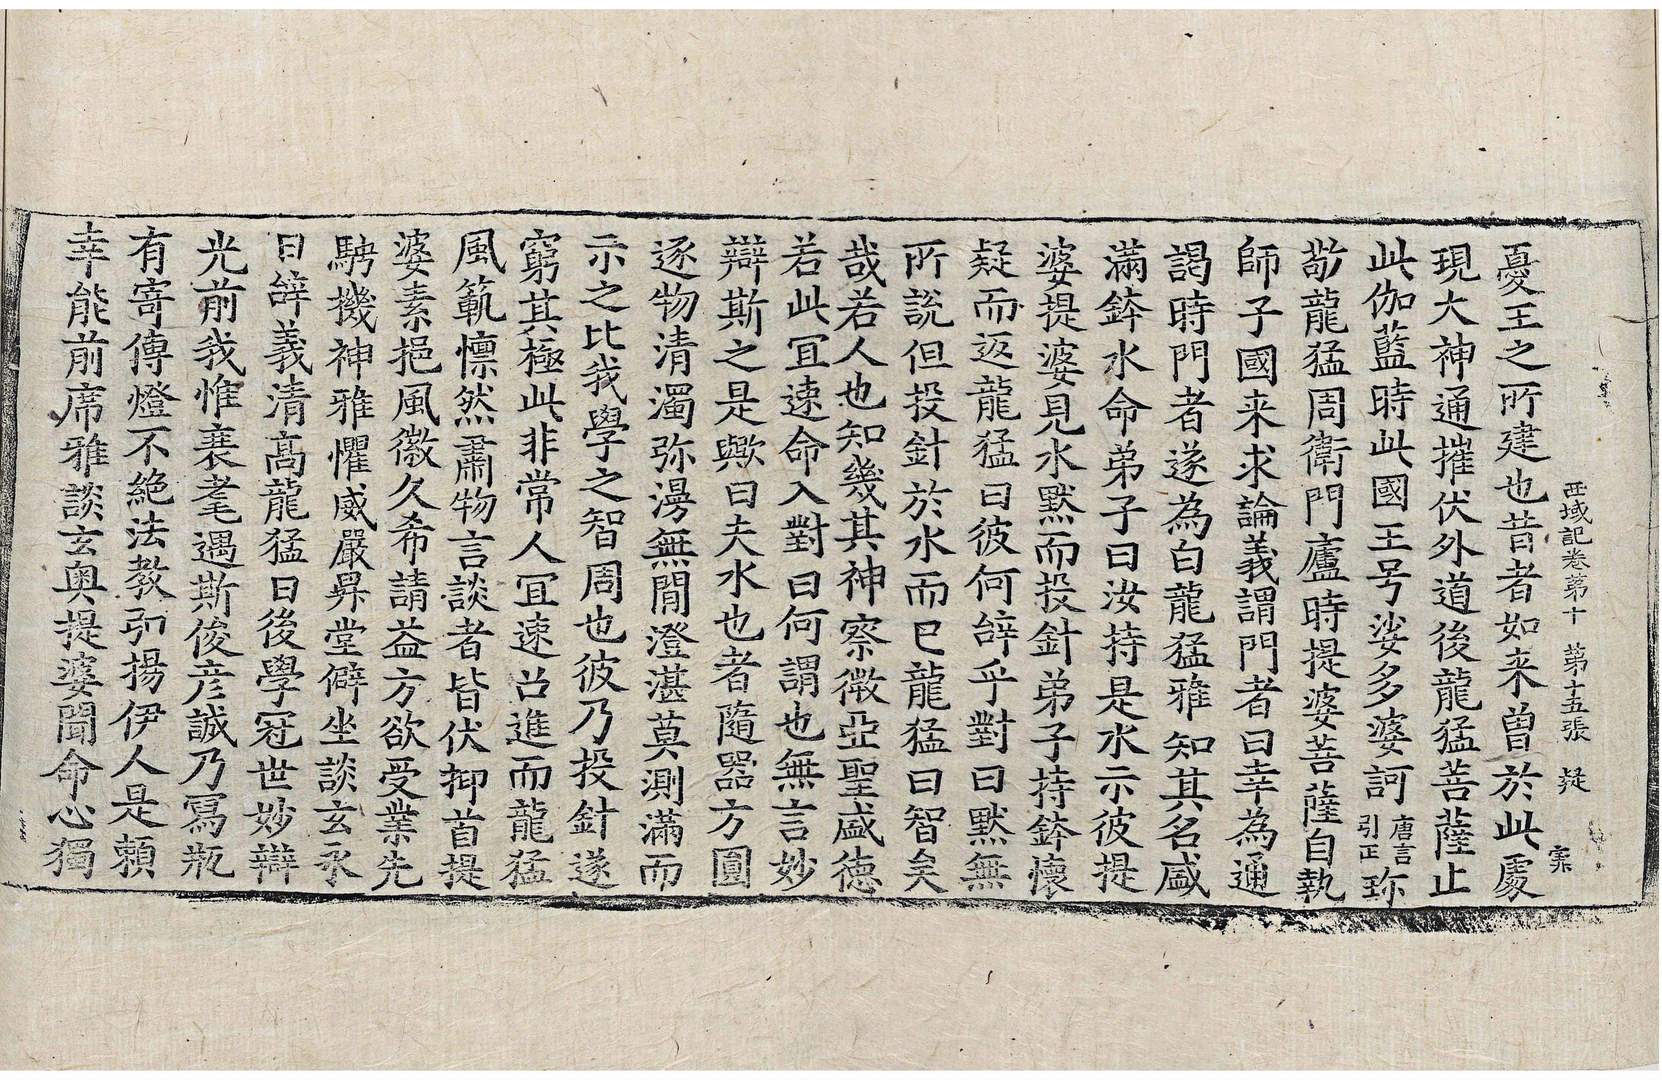 西域記卷第十 第十五張 疑 寀
憂王之所建也昔者如来曾於此處
現大神通摧伏外道後龍猛菩薩止
此伽藍時此國王号娑多婆訶唐言引正珎
敬龍猛周衛門廬時提婆菩薩自執
師子國来求論義謂門者曰幸為通
謁時門者遂為白龍猛雅知其名盛
滿鉢水命弟子曰汝持是水示彼提
婆提婆見水默而投針弟子持鉢懷
疑而返龍猛曰彼何辝乎對曰默無
所說但投針於水而已龍猛曰智矣
哉若人也知幾其神察微亞聖盛德
若此冝速命入對曰何謂也無言妙
辯斯之是歟曰夫水也者隨器方圓
逐物清濁弥漫無閒澄湛莫測滿而
示之比我學之智周也彼乃投針遂
窮其極此非常人冝速召進而龍猛
風範懔然肅物言談者皆伏抑首提
婆素挹風徽久希請益方欲受業先
騁機神雅懼威嚴昇堂僻坐談玄永
日辝義清髙龍猛曰後學冠世妙辯
光前我惟衰耄遇斯俊彦誠乃寫瓶
有寄傳燈不絶法教弘揚伊人是頼
幸能前席雅談玄奥提婆聞命心獨